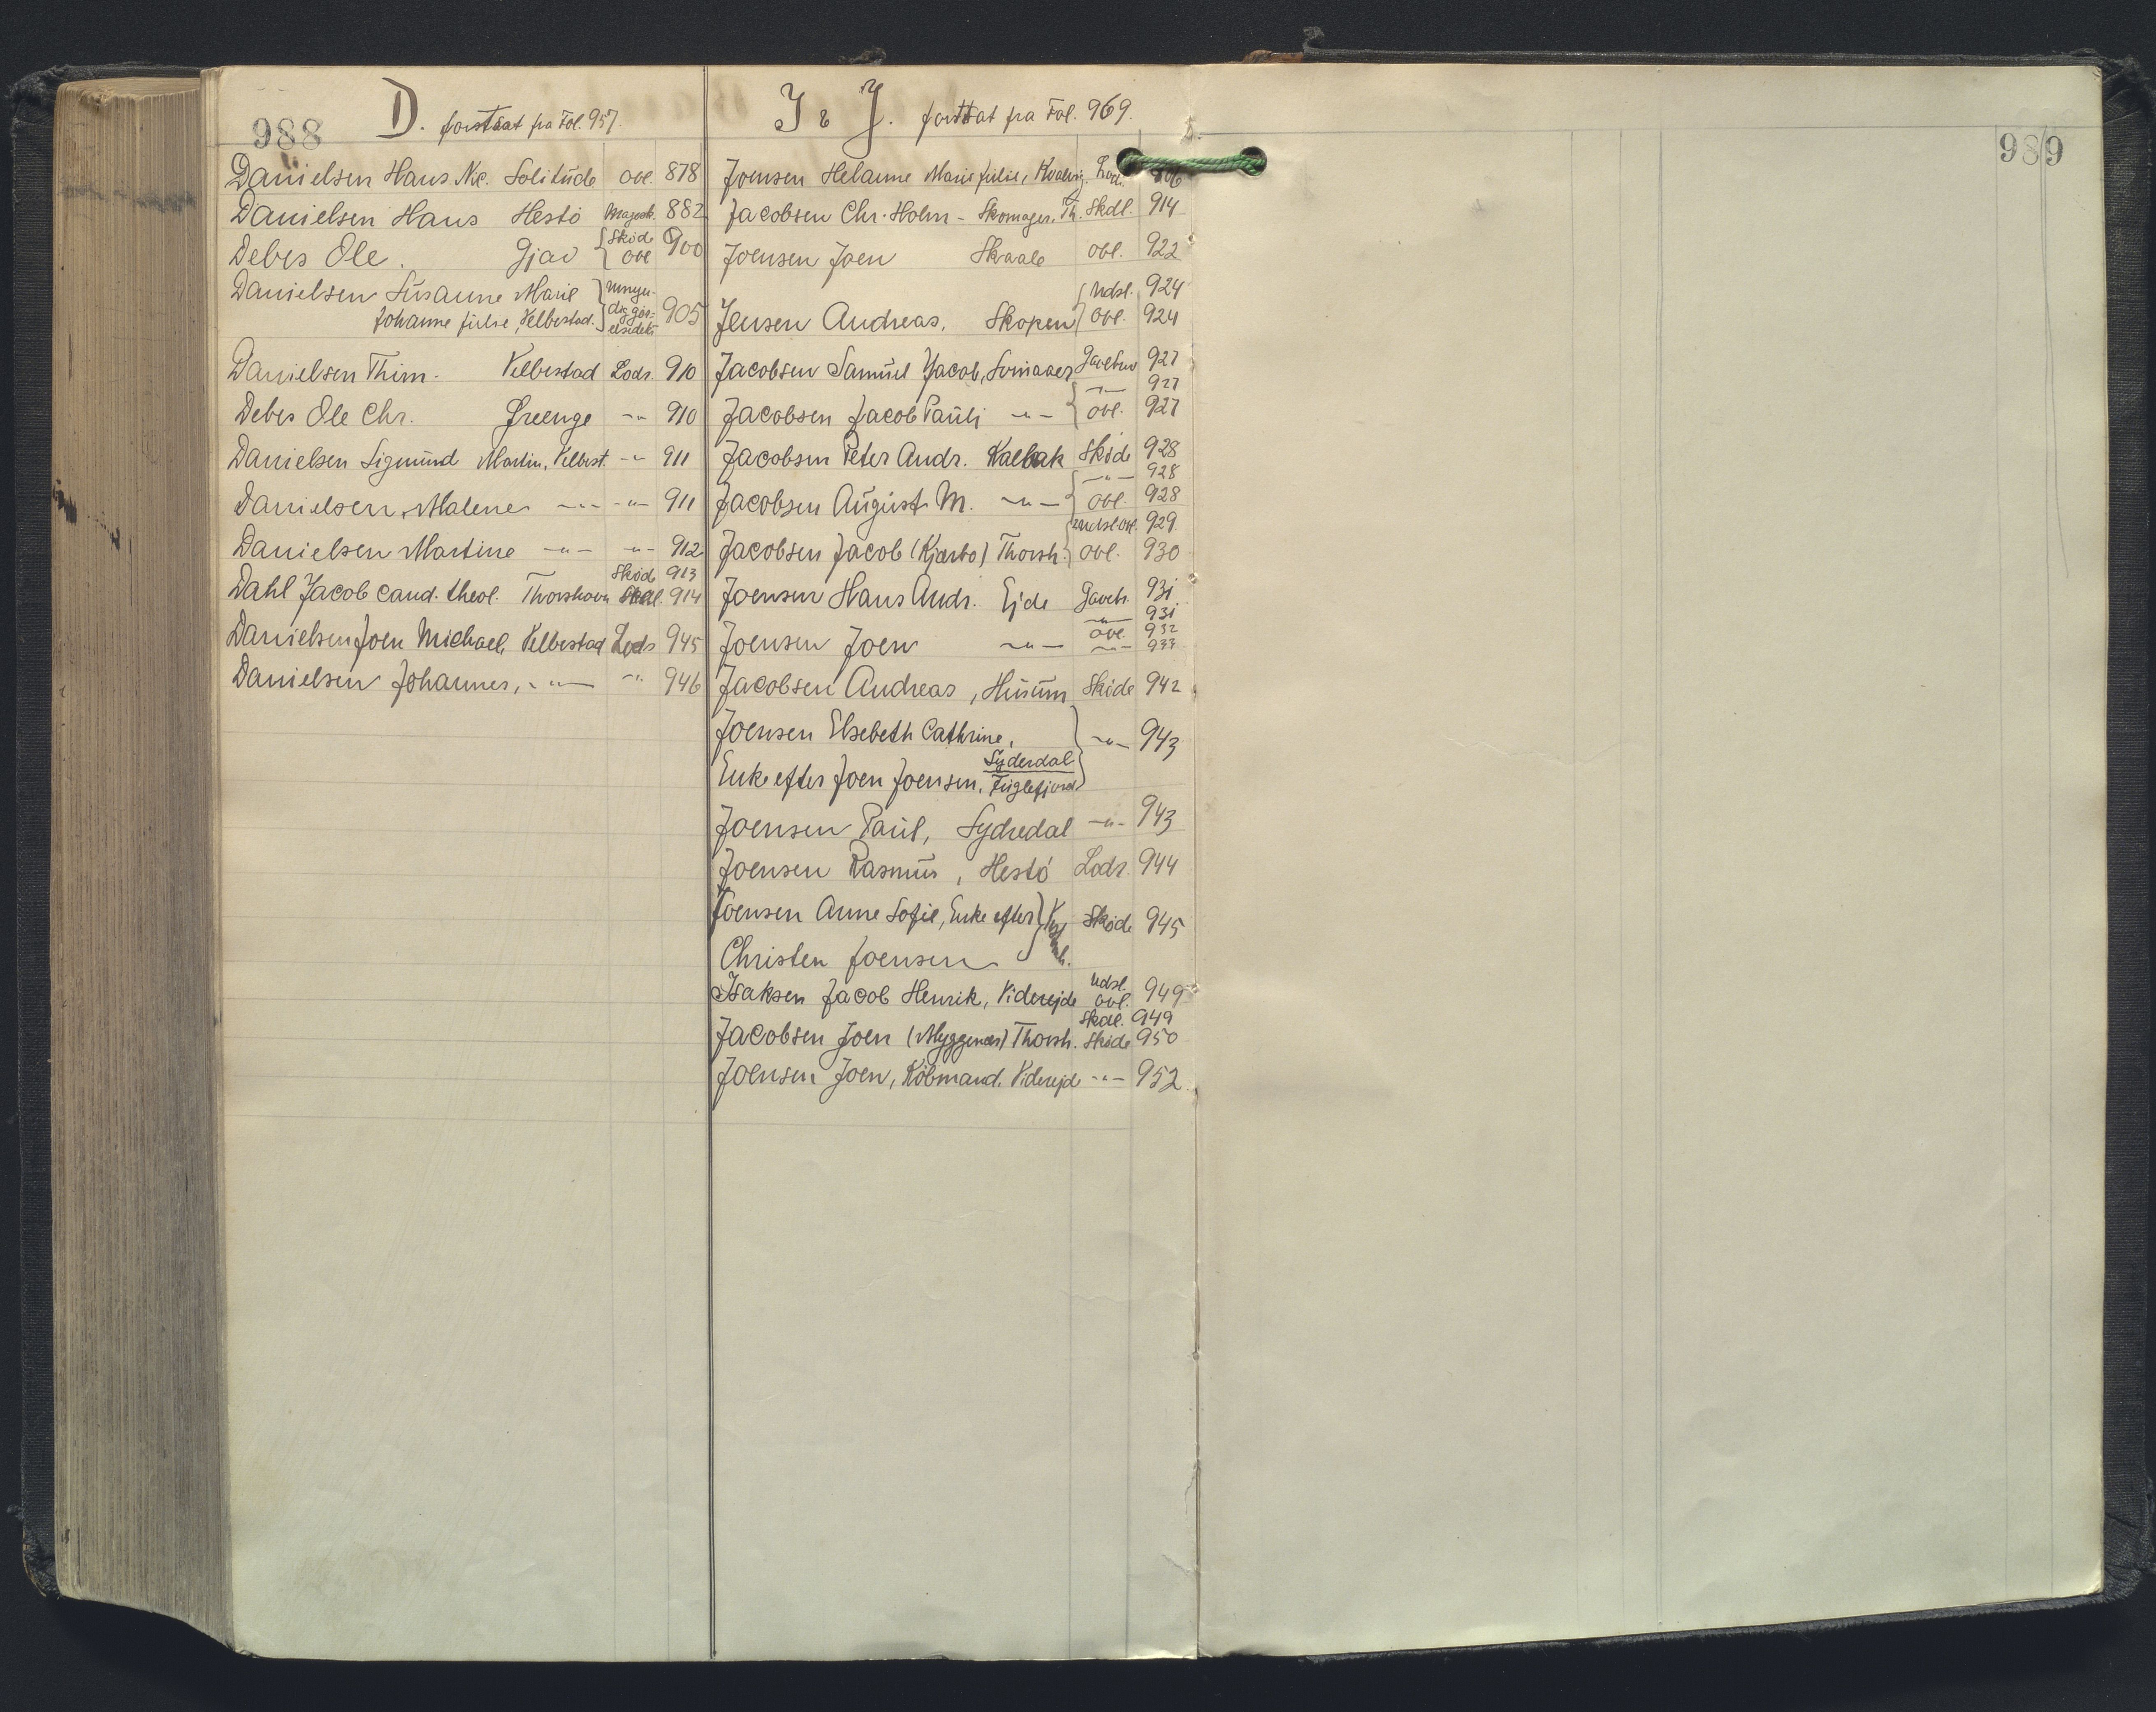 988
D. fortsat fra Fol. 957.
Danielsen Hans Nic. Solitude ovl. 878
Danielsen Hans Hestö Magesk. 882
Debes Ole. Gjov { Sköde ovl 900
Danielsen Susanne Marie } Umyn-
Johanne Julie, Velbestad. } dig gör- 905
elsedekr.
Danielsen Thim. Velbestad Lods. 910
Debes Ole Chr. Øreenge -"- 910
Danielsen Sigmund Martin, Velbest. -"- 911
Danielsen, Malene -"- -"- 911
Danielsen Martine -"- -"- 912
Sköde 913
Dahl Jacob cand. theol. Thorshavn Skdl. 914
Danielsen Joen Michael, Velbestad Lods 945
Danielsen Johannes, -"- -"- 946
I & J. fortsat fra Fol. 969.
Joensen Helanne Marie Julie, Hvalvig. Lods. 906
Jacobsen Chr. Holm - Skomager, Th. Skdl. 914
Joensen Joen Skaale ovl. 922
{ Udsl. 924
Jensen Andreas, Skopen { ovl. 924
Jacobsen Samuel Jacob, Sorvaaer Gavebrev 927
-"- 927
Jacobsen Jacob Pauli -"- { ovl. 927
Jacobsen Peter Andr. Kalbak Sköde 928
-"- 928
Jacobsen August M. -"- { ovl. 928
Udsl. ovl. 929.
Jacobsen Jacob (Kjærbo) Thorsh. { ovl. 930
Joensen Hans Andr. Ejde Gaveb. 931
-"- 931
Joensen Joen -"- ovl. 932
-"- 933
Jacobsen Andreas, Husum Sköde 942
Joensen Elsebeth Cathrine, } -"- 943
Enke efter Joen Joensen, Syderdal Fuglefjord }
Joensen Paul, Sydredal -"- 943
Joensen Rasmus, Hestö Lods. 944
Joensen Anne Sofie, Enke efter } Sköde 945
Christen Joensen
Isaksen Jacob Henrik, Viderejde Udsl. ovl. 949
Skdl. 949
Jacobsen Joen (Myggenæs) Thorsh. Sköde 950
Joensen Joen, Köbmand, Viderejde -"- 952.
989